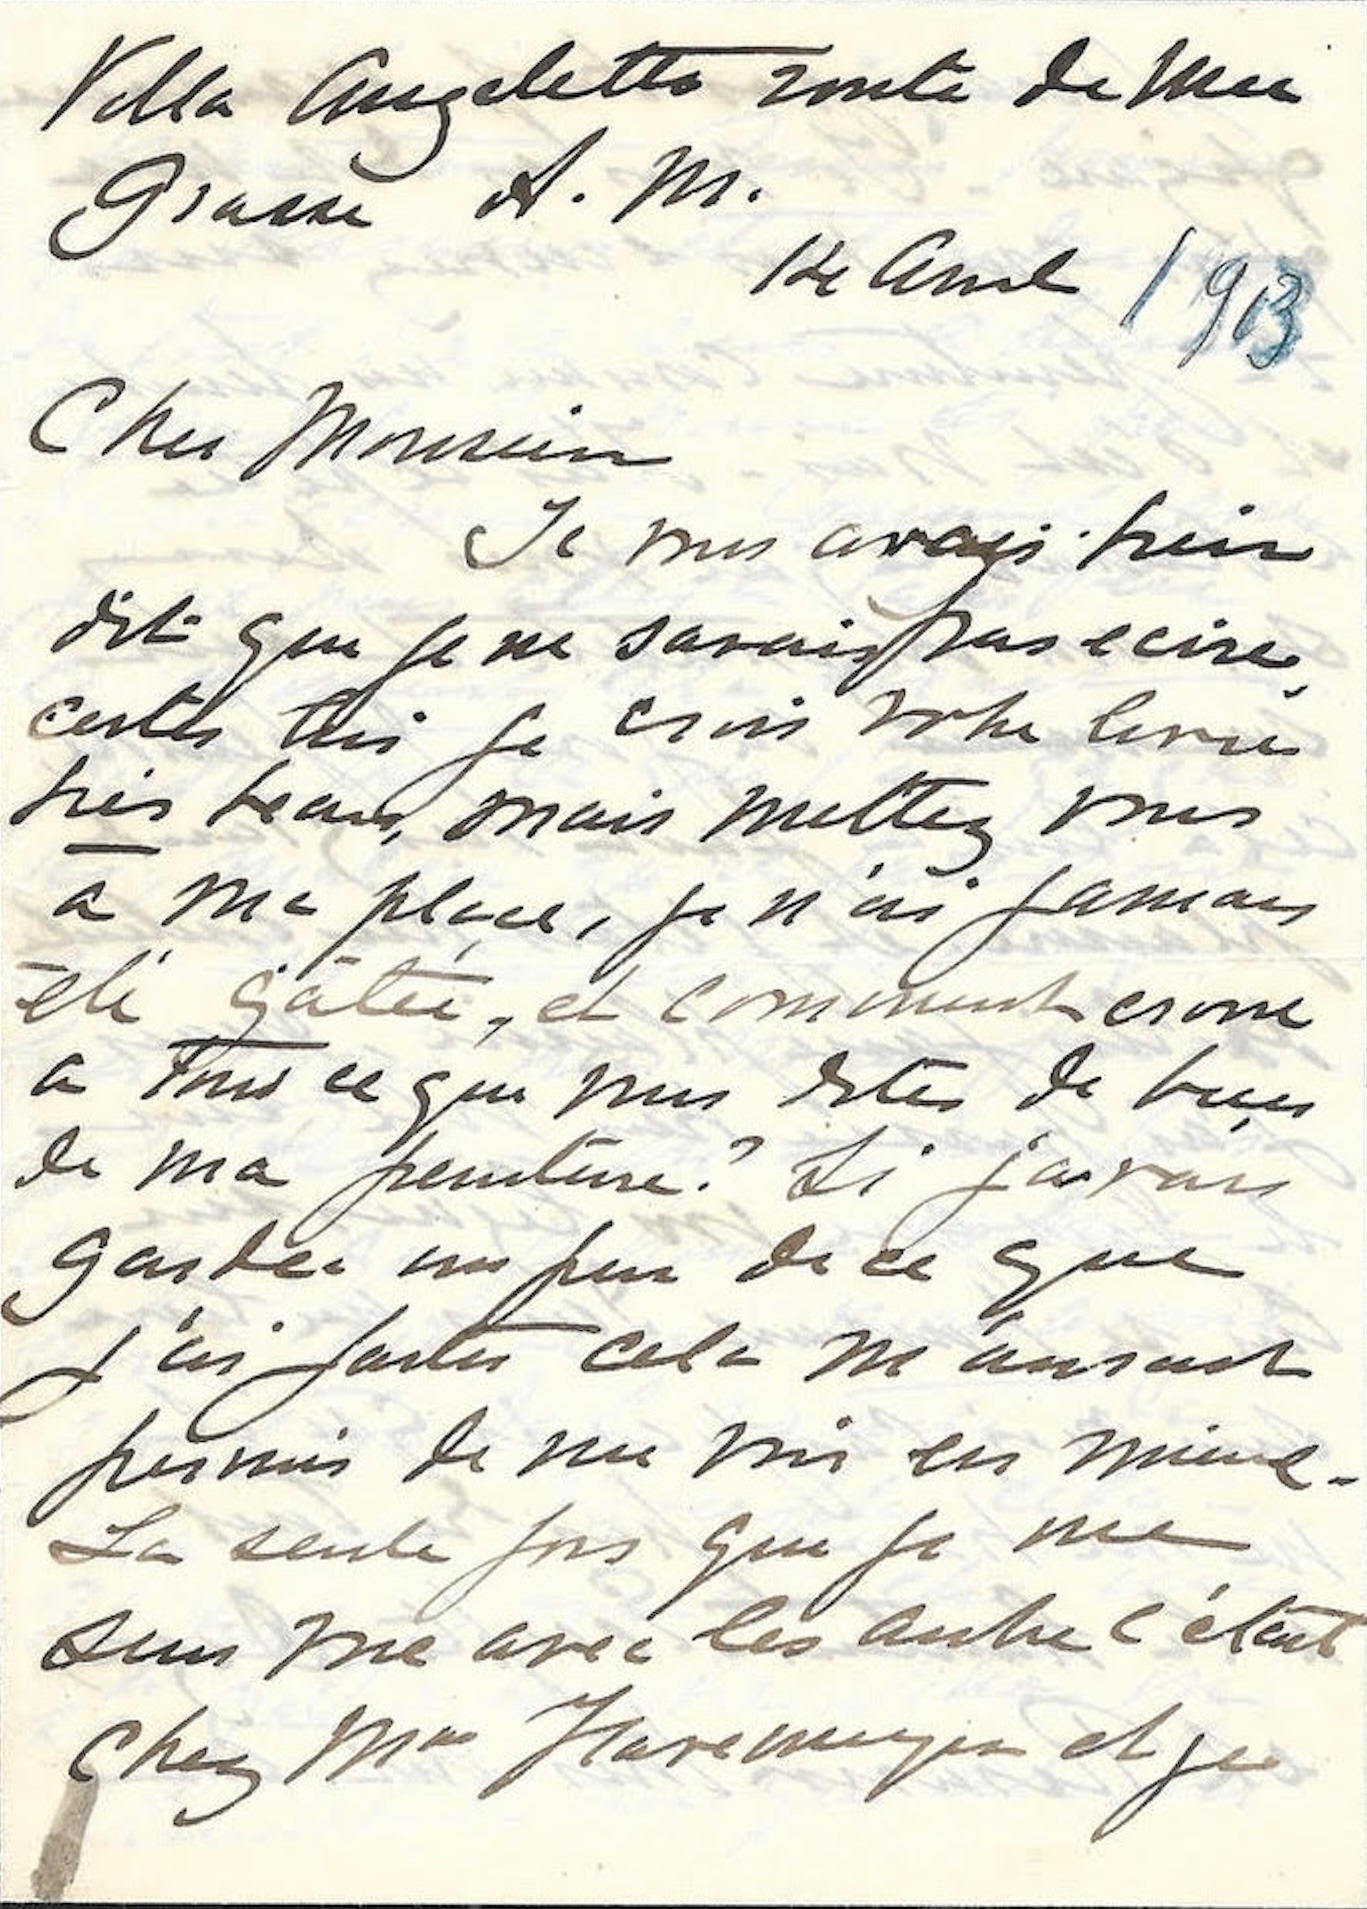 Villa Angeletto route de Nice
Grasse A. M.
12e Avril 1913
Cher Monsieur
Je vous avais bien
dit que je ne savais pas ecire,
certes oui je crois votre livre
très beau, mais mettez vous
a ma place, je n'ai jamais
été gâtée, et comment croire
a tous ce que vous dites de bien
de ma peinture? Si j'avais
garder un peu de ce que
j'ai faites cela m'aurait
permis de me voir en mieux.
La seule fois que je me
suis vue avec les autre c'était
chez Mme Havemeyer et je